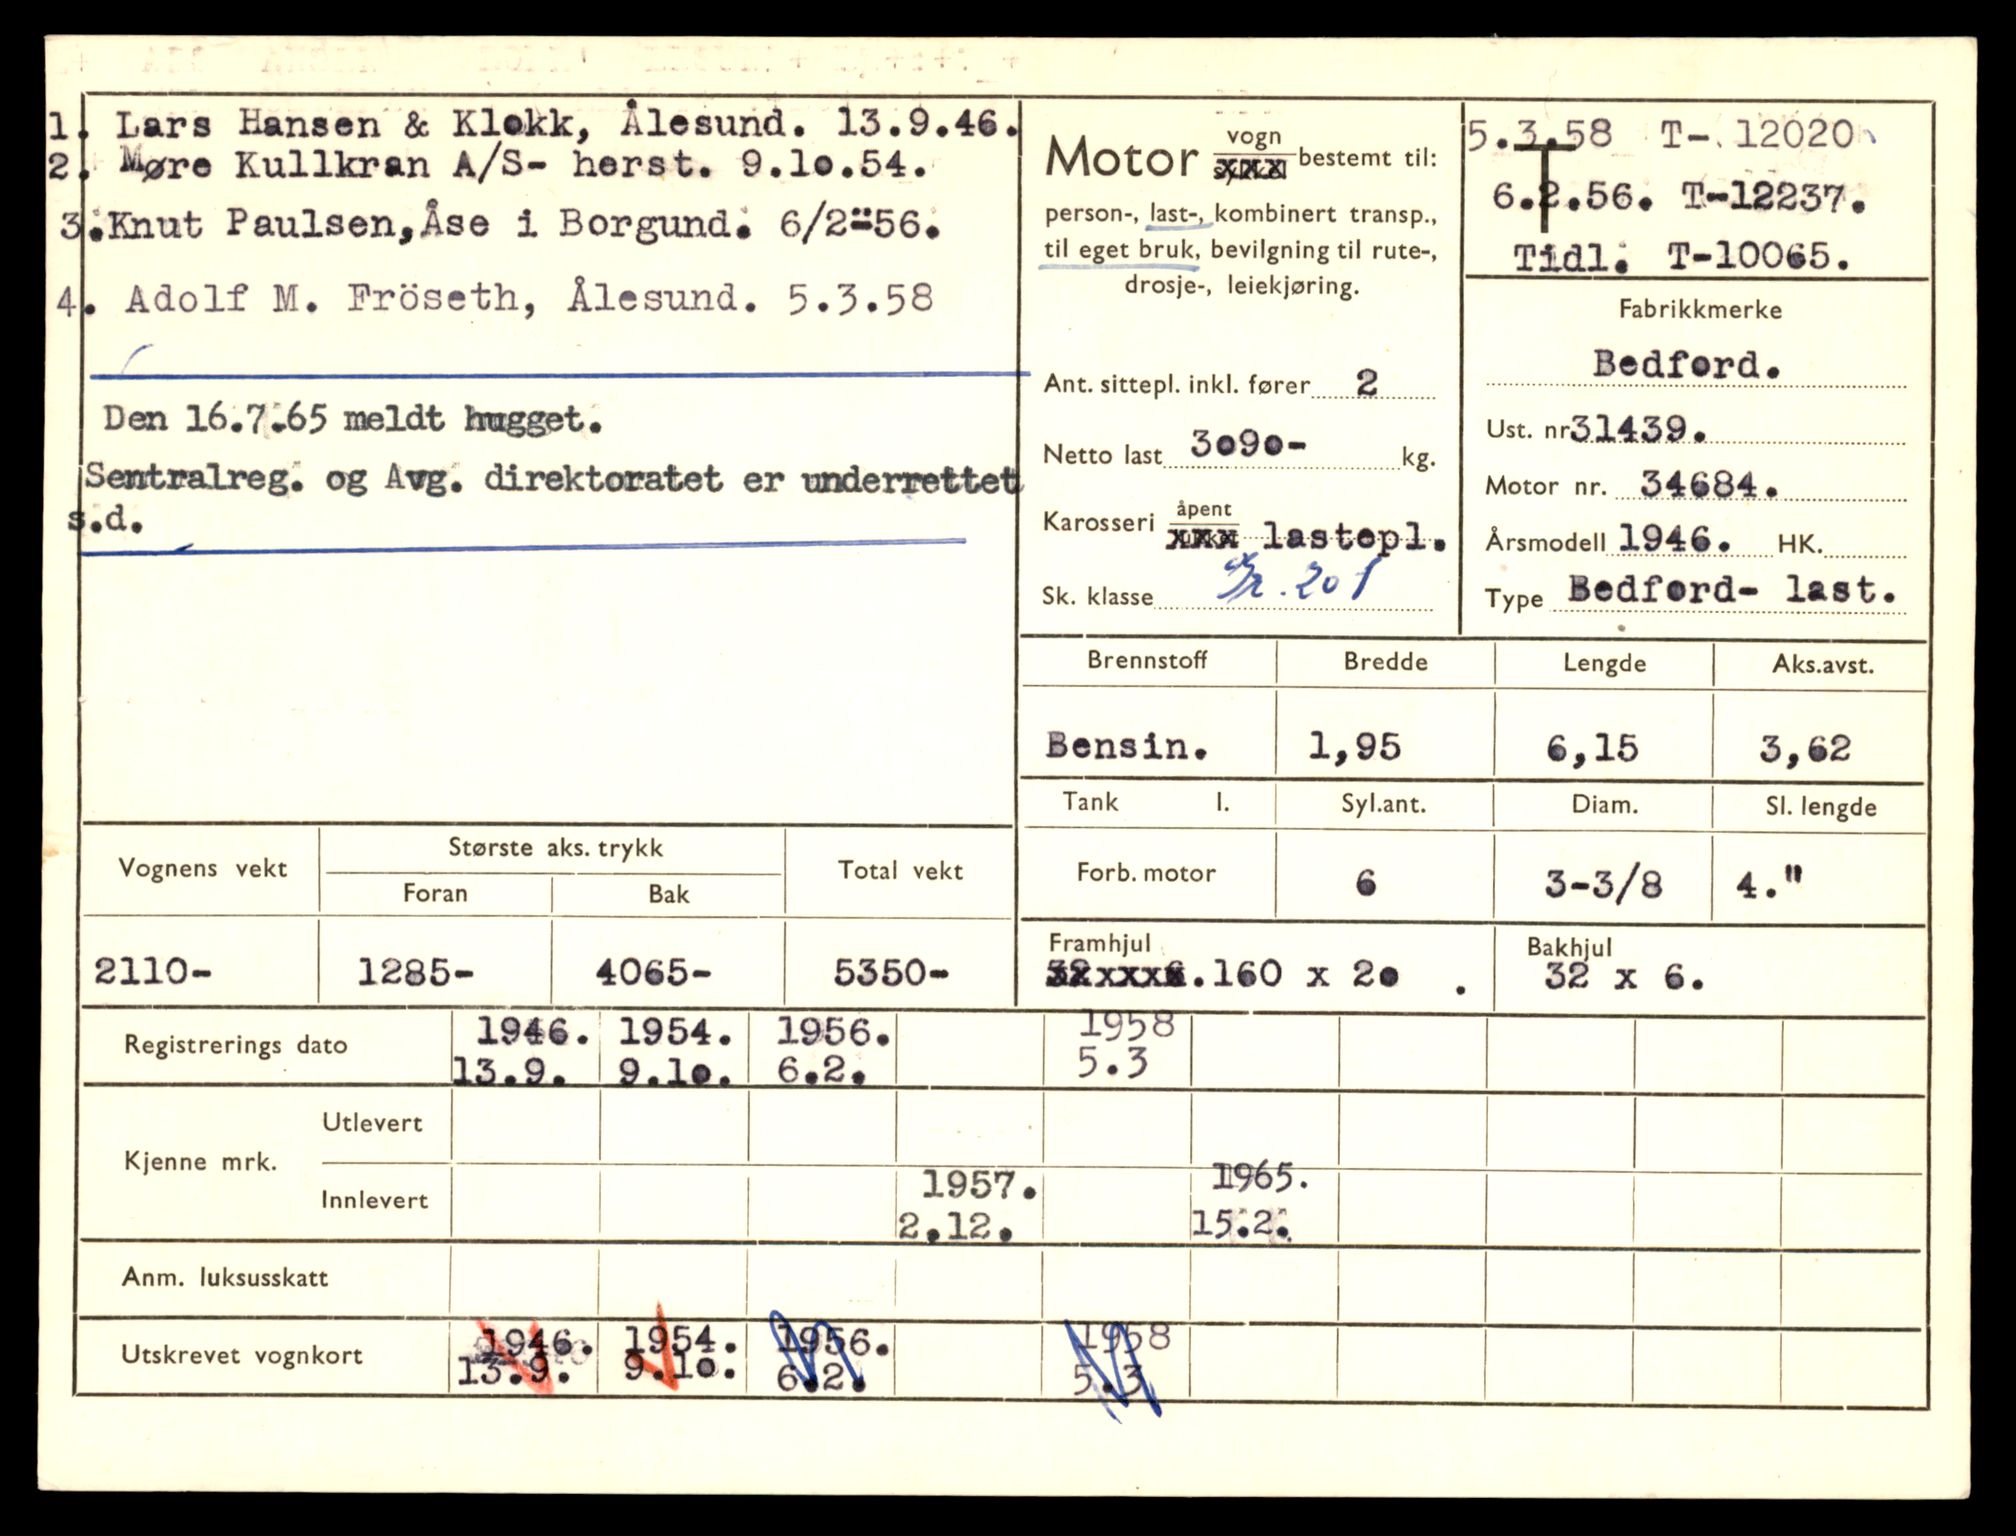 1. Lars Hansen & Klokk, Ålesund. 13.9.46.
2. Møre Kullkran A/S- herst. 9.1o.54.
3.Knut Paulsen,Åse i Borgund. 6/2-56.
4. Adolf M. Fröseth, Ålesund. 5.3.58
Den 16.7.65 meldt hugget.
Sentralreg. og Avg. direktoratet er underrettet
s.d.
Motor vogn bestemt til:
person-, last-, kombinert transp.,
til eget bruk, bevilgning til rute-,
drosje-, leiekjøring.
Ant. sittepl. inkl. fører 2
Netto last 3090- kg.
Karosseri åpent xxx lastepl.
Sk. klasse 201
5.3.58 T- 12020
6.2.56. T-12237.
Tidl. T-10065.
T
Fabrikkmerke
Bedford.
Ust. nr 31439.
Motor nr. 34684.
Årsmodell 1946. HK.
Type Bedford- last.
Brennstoff Bredde Lengde Aks.avst.
Bensin. 1,95 6,15 3,62
Tank l. Syl.ant. Diam. Sl. lengde
Forb. motor 6 3-3/8 4."
Framhjul Bakhjul
.160 x 2o . 32 x 6.
Vognens vekt Største aks. trykk Total vekt
Foran Bak
2110- 1285- 4065- 5350-
Registrerings dato 1946. 1954. 1956. 1958
13.9. 9.1o. 6.2. 5.3
Kjenne mrk.
Utlevert
Innlevert 1957. 1965.
2.12. 15.2.
Anm. luksusskatt
Utskrevet vognkort 1946. 1954. 1956. 1958
13.9. 9.1o. 6.2. 5.3